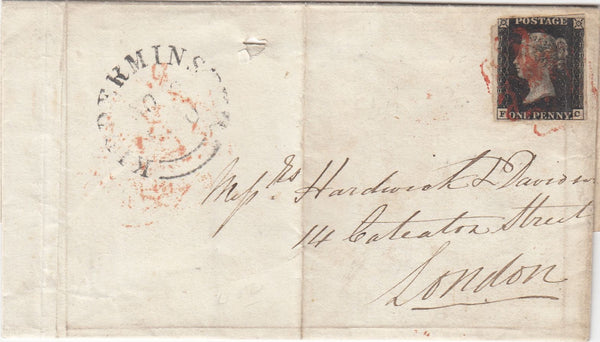 POSTAGE
F C
ONE PENNY
KIDDERMINSTER
Messrs Hardwick & Davidson
14 Cateaton Street
London